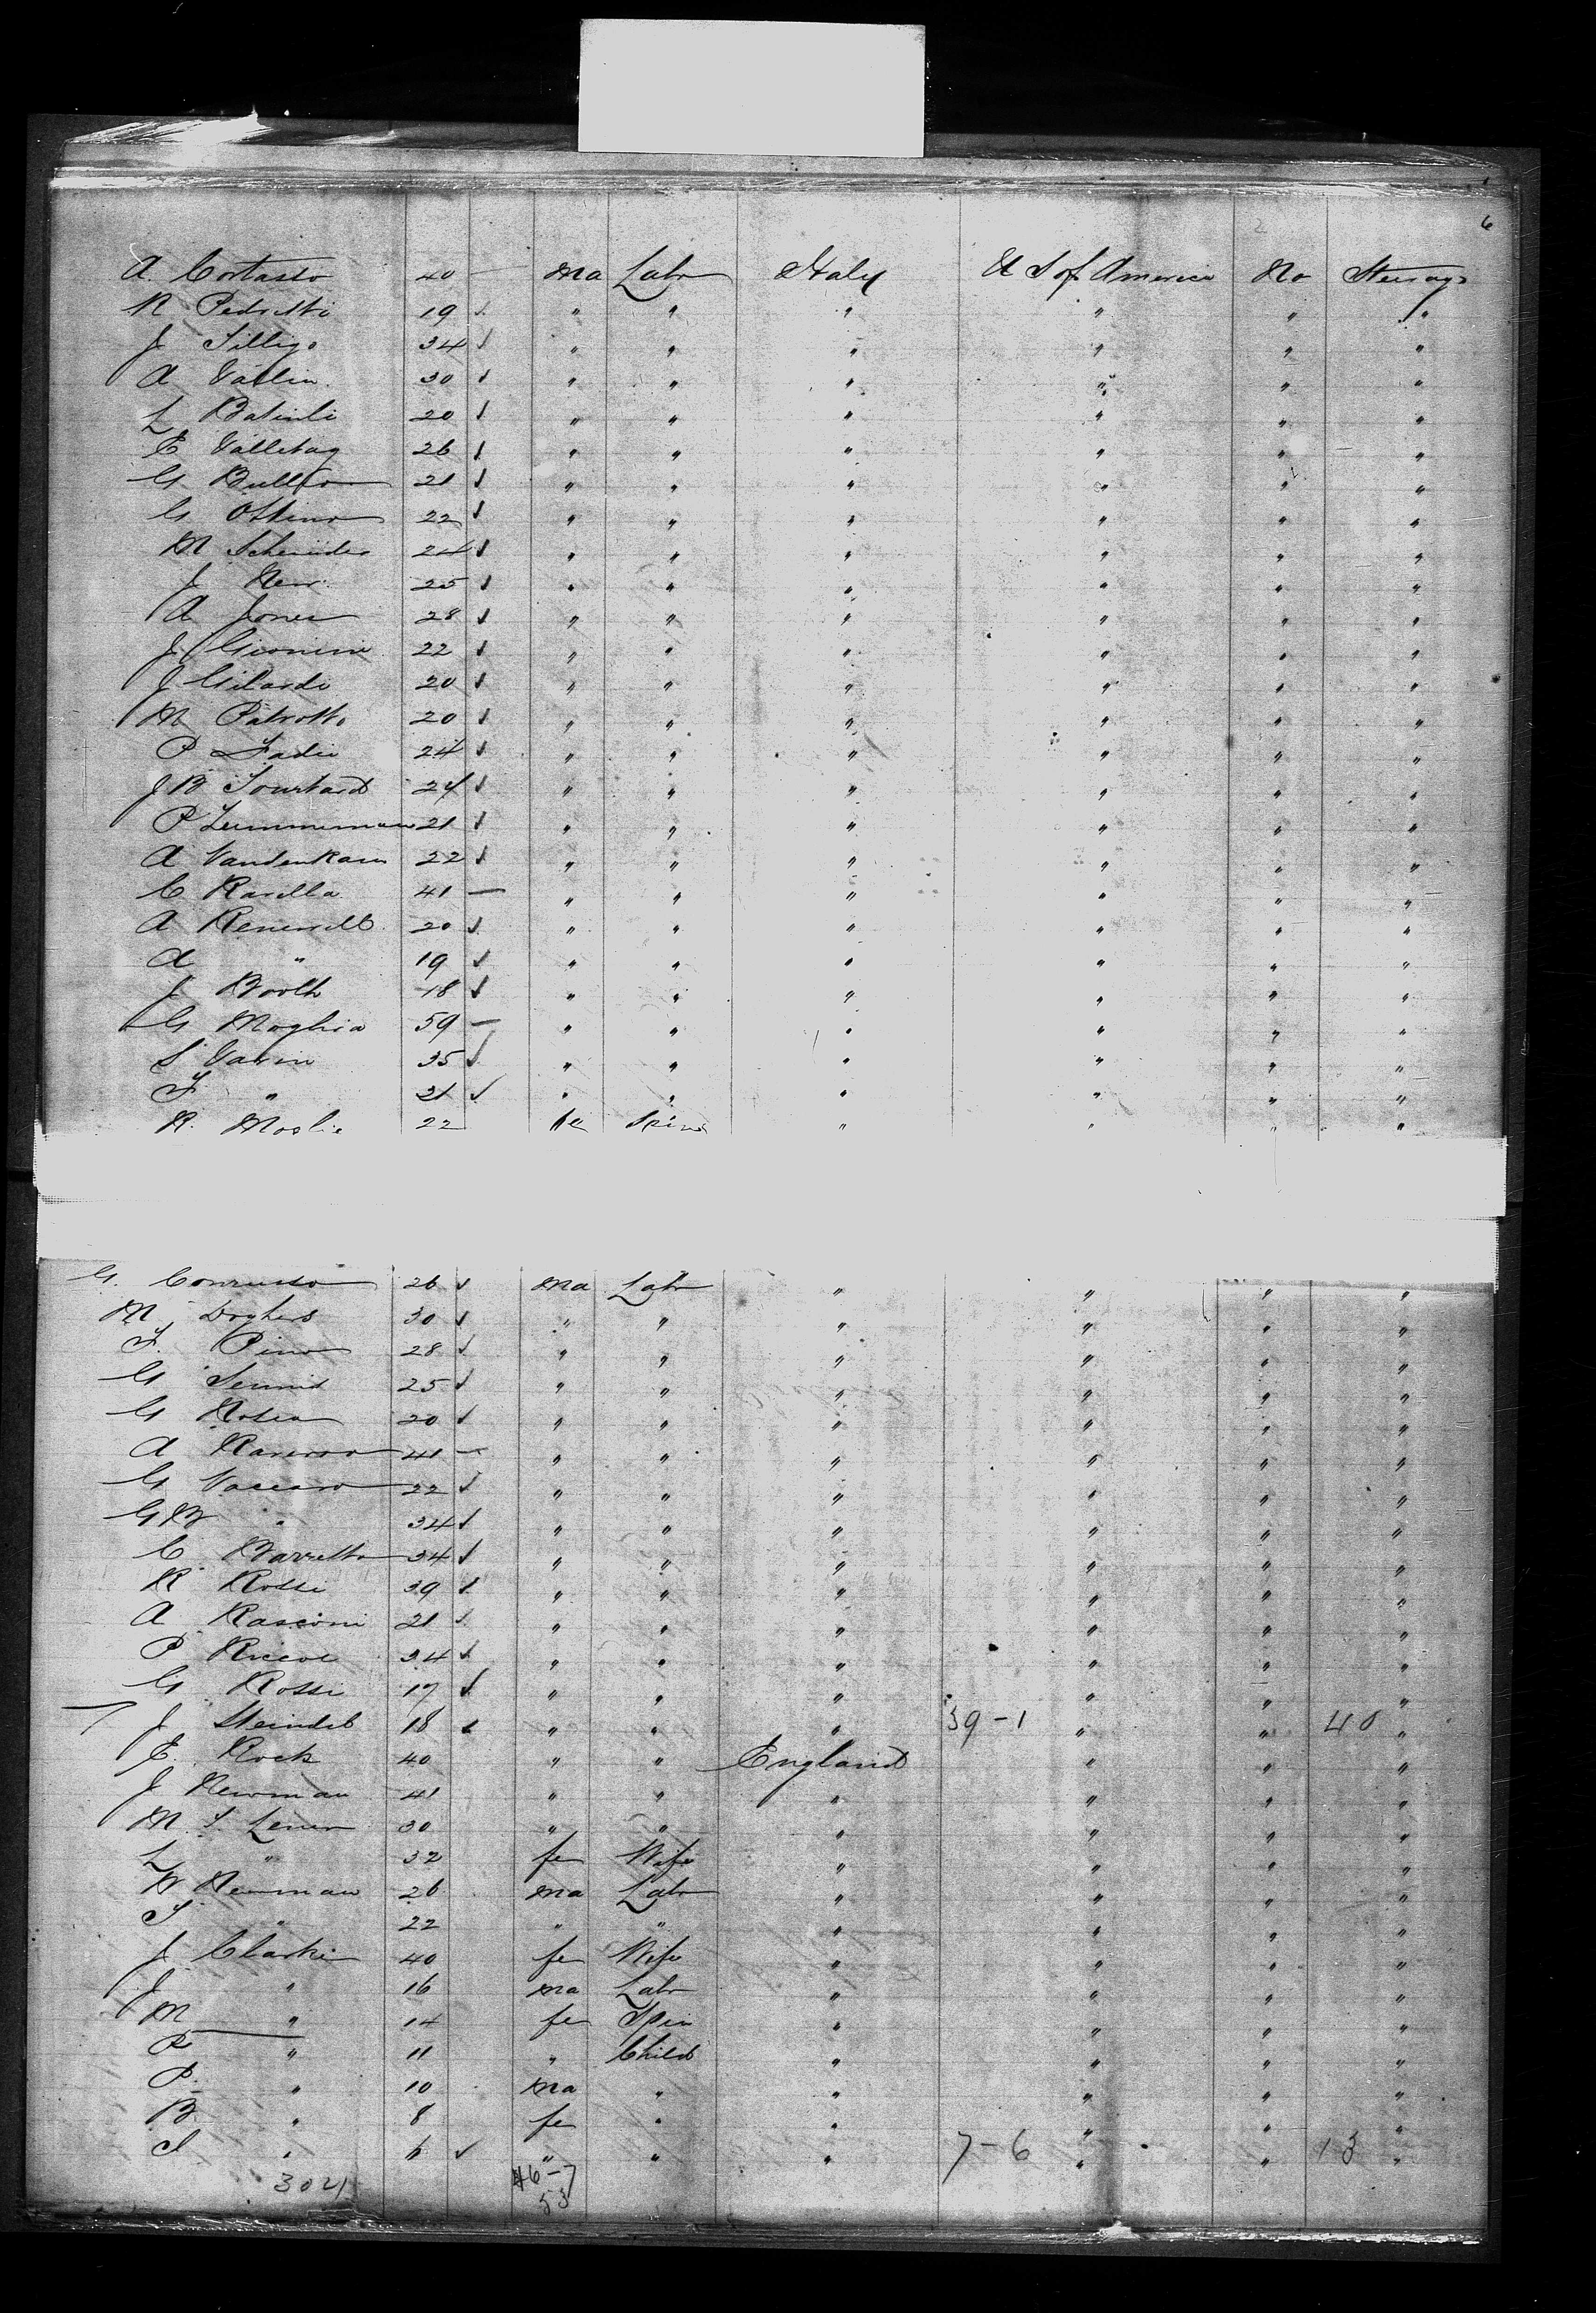 2 6
A. Cortasso 40 — ma Labr Italy U S of America No Steerage
N Pedretti 19 ✓ " " " " " "
J Tilligo 34 ✓ " " " " " "
A Vaslin 30 ✓ " " " " " "
L Batinli 20 ✓ " " " " " "
E Valletag 26 ✓ " " " " " "
G 21 ✓ " " " " " "
G Otteno 22 ✓ " " " " " "
M Schnider 24 ✓ " " " " " "
J New 25 ✓ " " " " " "
A Jones 28 ✓ " " " " " "
J Gionini 22 ✓ " " " " " "
J Gilardi 20 ✓ " " " " " "
M Patrotto 20 ✓ " " " " " "
P Fadie 24 ✓ " " " " " "
J B Tourtard 24 ✓ " " " " " "
P Zummerman 21 ✓ " " " " " "
A Vandenkarn 22 ✓ " " " " " "
C Ravella 41 — " " " " " "
A 20 ✓ " " " " " "
A " 19 ✓ " " " " " "
J Booth 18 ✓ " " " " " "
G Moglria 59 — " " " " " "
S Varin 35 ✓ " " " " " "
F " 21 ✓ " " " " " "
R. Moslie 22 fe Spins " " " "
G. 26 ✓ ma Labr " " " "
M Doghers 30 ✓ " " " " " "
F. Pino 28 ✓ " " " " " "
G 25 ✓ " " " " " "
G Rosea 20 ✓ " " " " " "
A 41 — " " " " " "
G Vaccaro 22 ✓ " " " " " "
G B " 34 ✓ " " " " " "
C Barretto 34 ✓ " " " " " "
R Rossi 39 ✓ " " " " " "
A Rasconi 21 ✓ " " " " " "
P 34 ✓ " " " " " "
G Rossi 17 ✓ " " " " " "
J Steindel 18 ✓ " " " 39-1 " " 40 "
E. Rock 40 " " England " " "
J Newman 41 " " " " " "
M. S. Lener 30 " " " " " "
L " 32 fe Wife " " " "
W Newman 26 ma Labr " " " "
S " 22 " " " " " "
J Clarke 40 fe Wife " " " "
J " 16 ma Labr " " " "
M " 14 fe Spin " " " "
R " 11 " Child " " " "
P. " 10 ma " " " " "
B " 8 fe " " " " "
S " 6 ✓ " " " 7-6 " " 13 "
3021 46-7
53